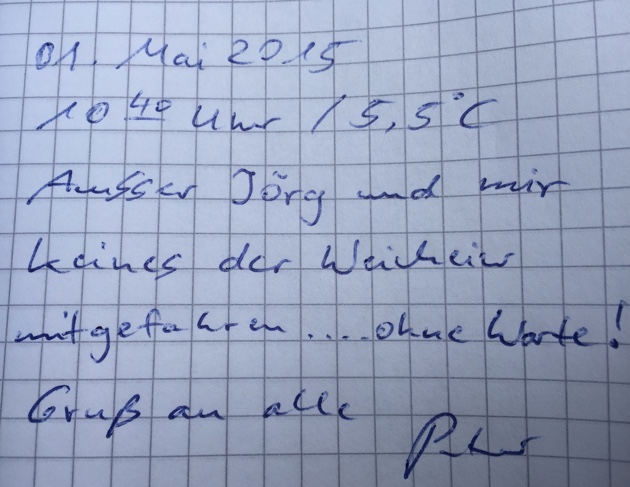 01. Mai 2015
10 40 Uhr / 5,5°C
Ausser Jörg und mir
keines der Weicheier
mitgefahren....ohne Worte!
Gruß an alle
Peter